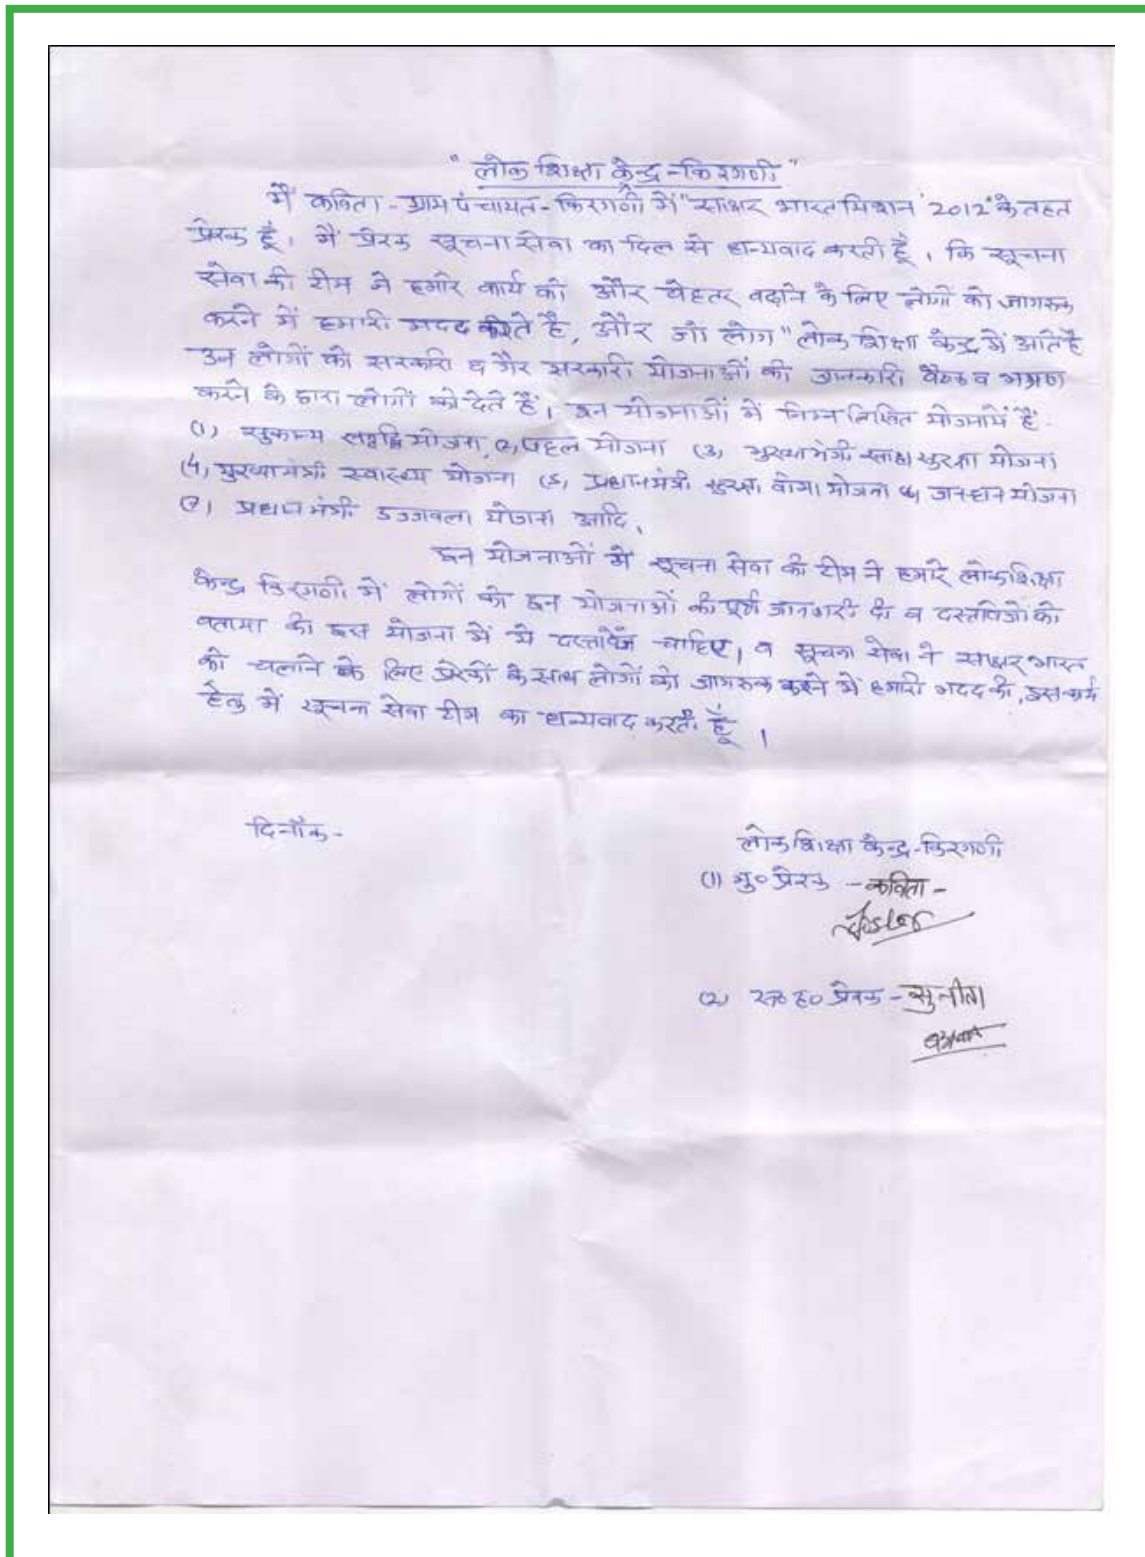 " लोक शिक्षा केन्द्र - किरगणी "
मैं कविता - ग्राम पंचायत - किरगणी में "साक्षर भारत मिशन '2012' के तहत
प्रेरक हूँ। मैं प्रेरक सूचना सेवा का दिल से धन्यवाद करती हूँ, कि सूचना
सेवा की टीम ने हमारे कार्य को और बेहतर बढ़ाने के लिए लोगों को जागरुक
करने में हमारी मदद करते है, और जो लोग "लोक शिक्षा केन्द्र में आते है
उन लोगों को सरकारी व गैर सरकारी योजनाओं की जानकारी बैठक व भ्रमण
करने के द्वारा लोगों को देते हैं। इन योजनाओं में निम्नलिखित योजनायें हैं:
(1) सुकन्य समृद्धि योजना (2) पहल योजना (3) मुख्यामंत्री सुरक्षा योजना
(4) मुख्यामंत्री स्वास्थ्य योजना (5) प्रधानमंत्री सुरक्षा बीमा योजना (6) जनधन योजना
(7) प्रधानमंत्री उज्जवला योजना आदि,
इन योजनाओं मे सूचना सेवा की टीम ने हमारे लोकशिक्षा
केन्द्र किरगणी में लोगों को इन योजनाओं की पूर्ण जानकारी दी व दस्तावेजो को
बताया की इस योजना में ये दस्तावेज चाहिए, व सूचना सेवा ने साक्षर भारत
को चलाने के लिए प्रेरकों के साथ लोगों को जागरुक करने में हमारी मदद की, इस कार्य
हेतु में सूचना सेवा टीम का धन्यवाद करती हूँ।
दिनाँक -
लोक शिक्षा केन्द्र - किरगणी
(1) मु० प्रेरक - कविता -
(2) स० प्रेरक - सुनीता